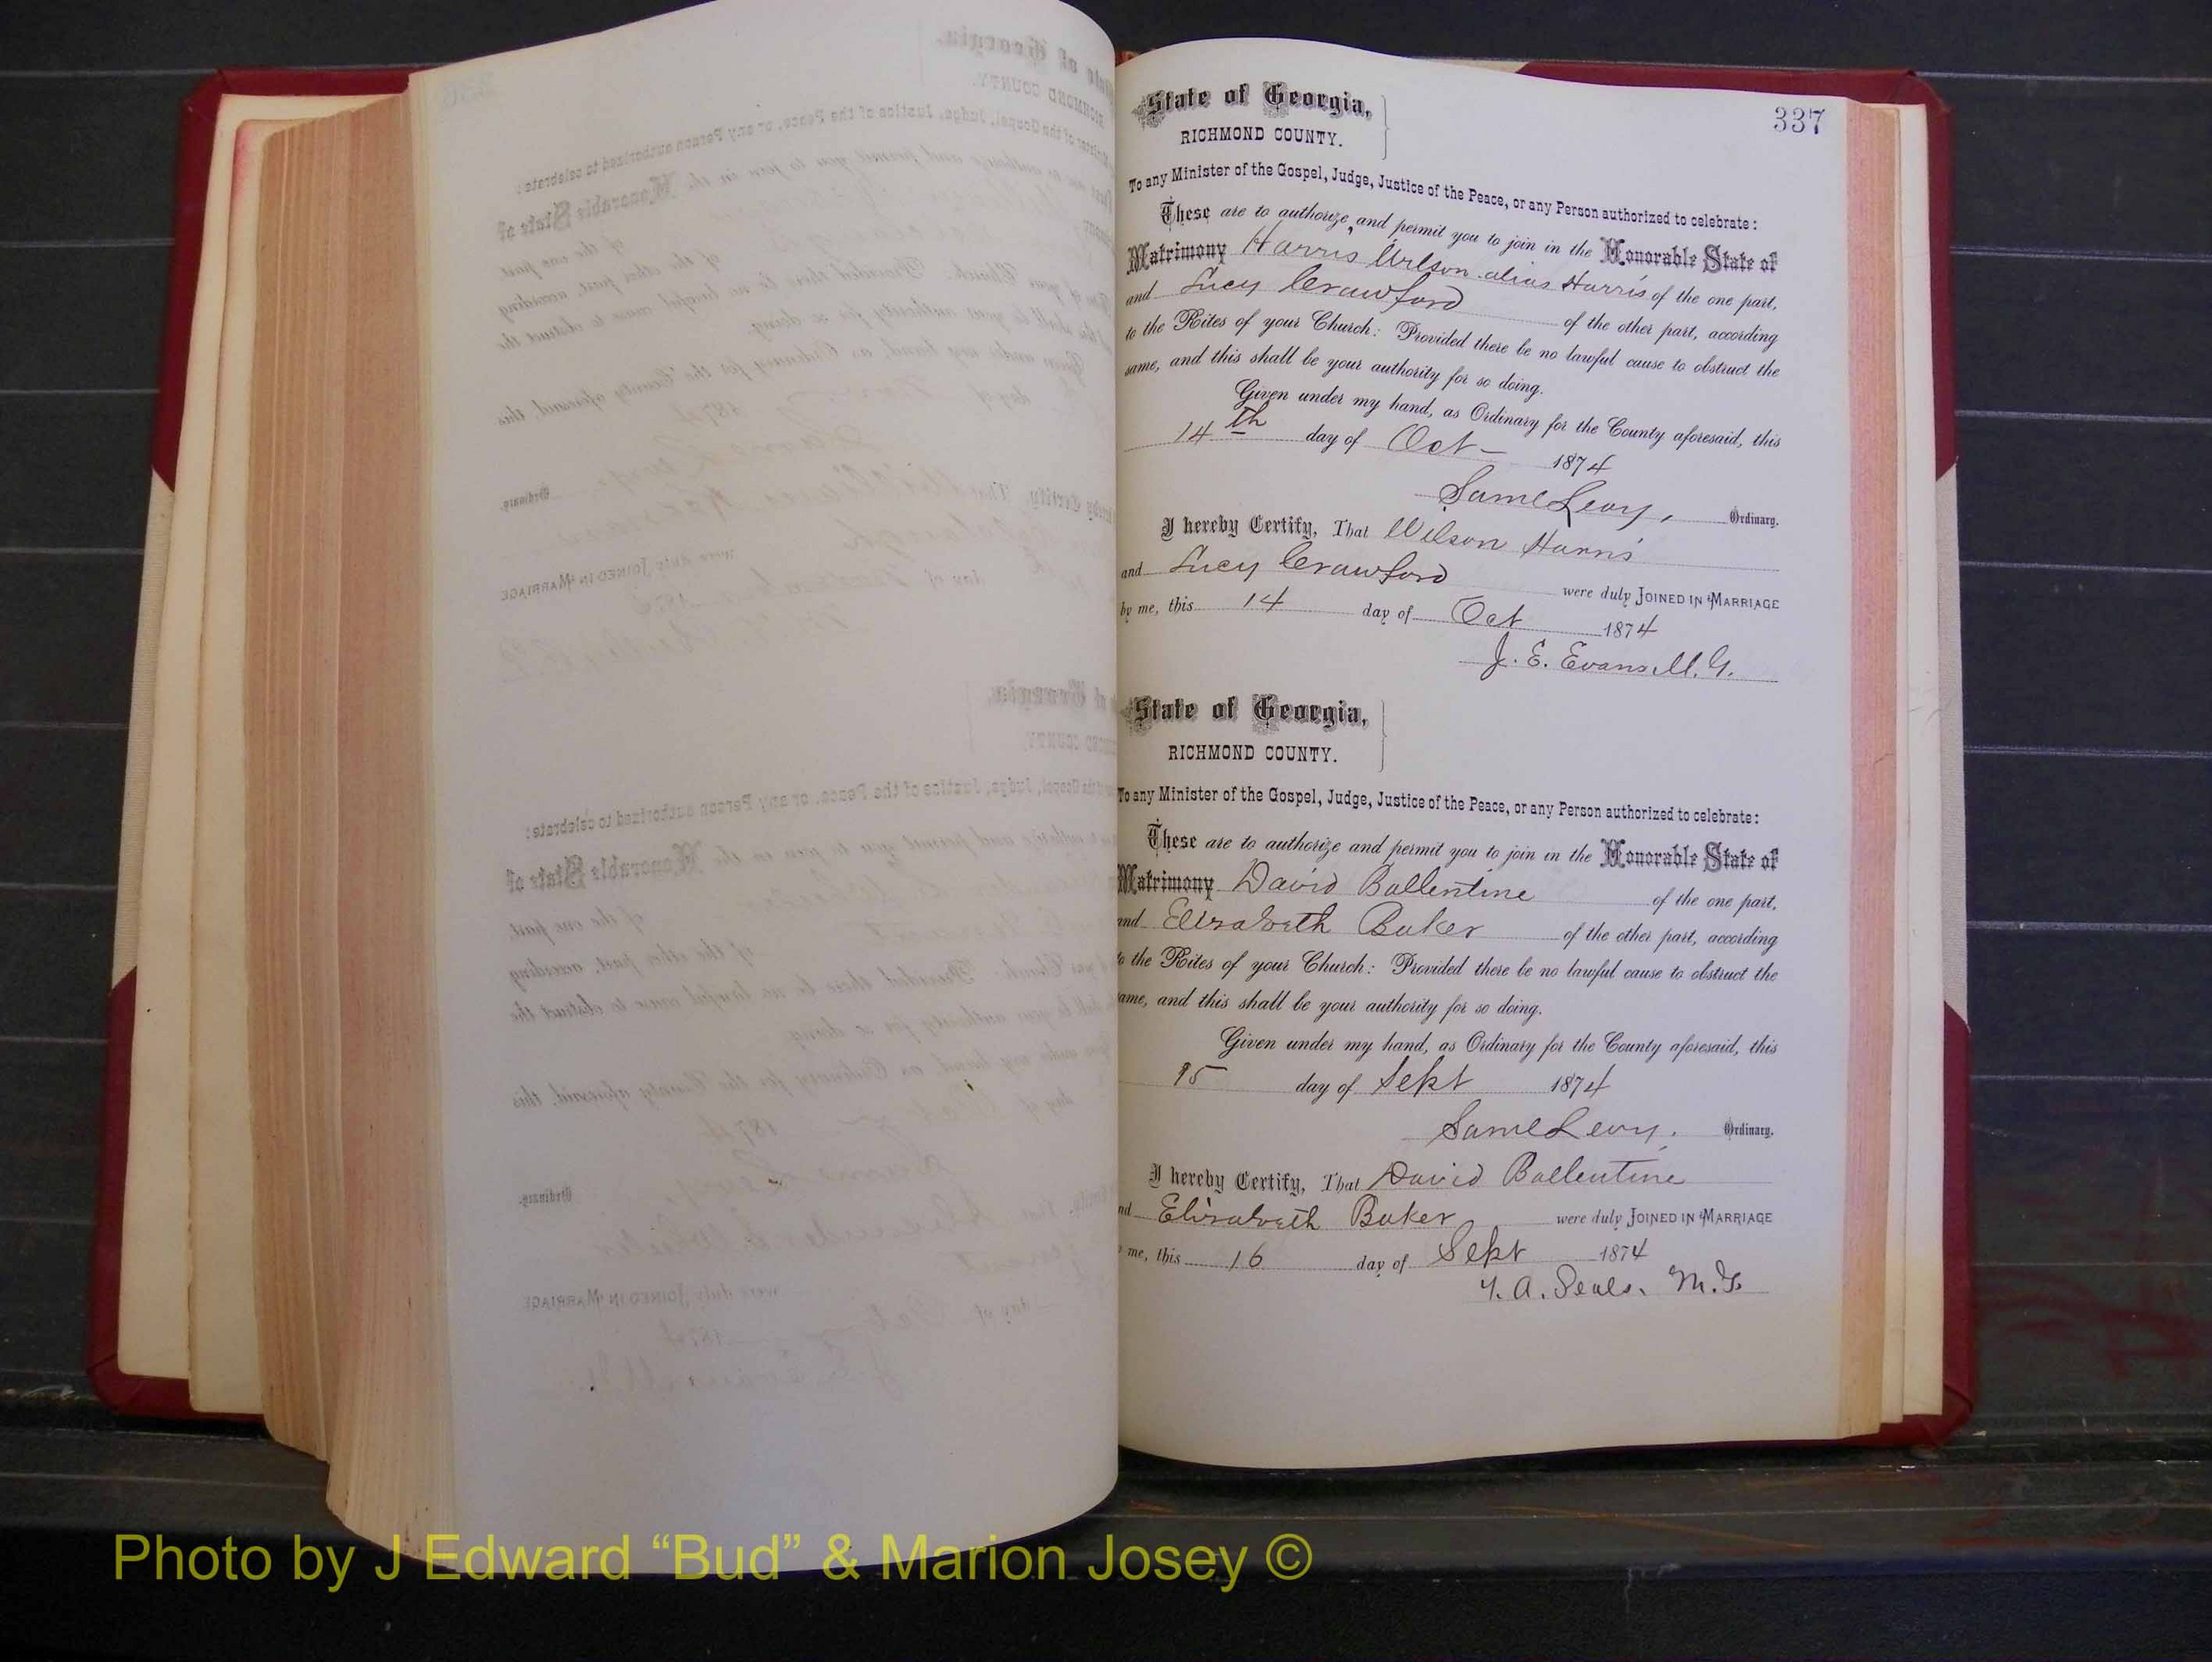 337
State of Georgia,
RICHMOND COUNTY.
To any Minister of the Gospel, Judge, Justice of the Peace, or any Person authorized to celebrate:
These are to authorize and permit you to join in the Honorable State of
Matrimony Harris Wilson alias Harris of the one part,
and Lucy Crawford of the other part, according
to the Rites of your Church: Provided there be no lawful cause to obstruct the
same, and this shall be your authority for so doing.
Given under my hand, as Ordinary for the County aforesaid, this
14th day of Oct 1874
Saml Levy, Ordinary.
I hereby Certify, That Wilson Harris
and Lucy Crawford were duly JOINED IN MARRIAGE
by me, this 14 day of Oct 1874
J. E. Evans M. G.
State of Georgia,
RICHMOND COUNTY.
To any Minister of the Gospel, Judge, Justice of the Peace, or any Person authorized to celebrate:
These are to authorize and permit you to join in the Honorable State of
Matrimony David Ballentine of the one part,
and Elizabeth Baker of the other part, according
to the Rites of your Church: Provided there be no lawful cause to obstruct the
same, and this shall be your authority for so doing.
Given under my hand, as Ordinary for the County aforesaid, this
15 day of Sept 1874
Saml Levy. Ordinary.
I hereby Certify, That David Ballentine
and Elizabeth Baker were duly JOINED IN MARRIAGE
me, this 16 day of Sept 1874
A. Seals. M. G.
Photo by J Edward “Bud” & Marion Josey ©